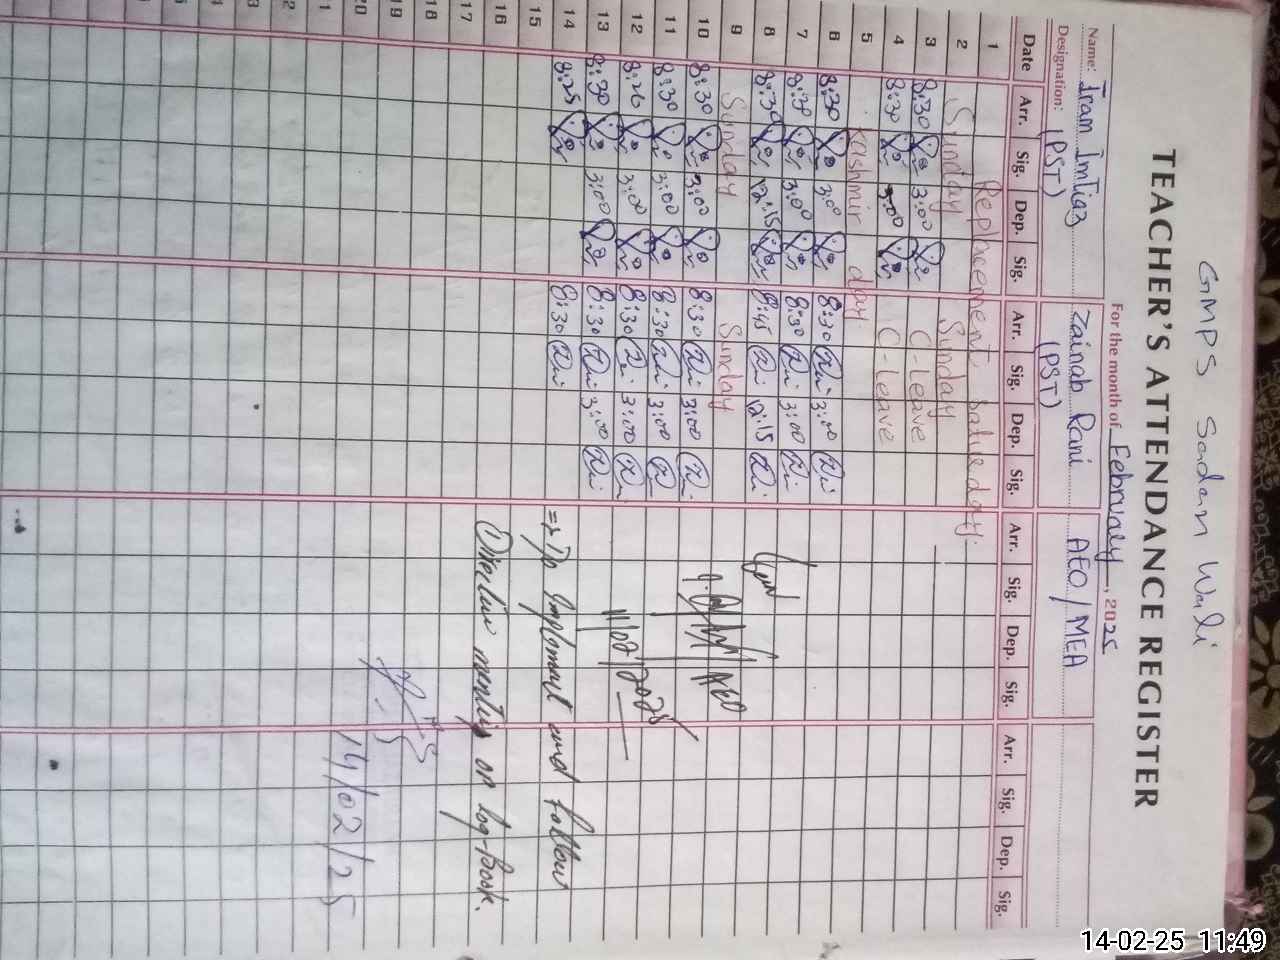 GMPS Sadan Wali
TEACHER'S ATTENDANCE REGISTER
For the month of February, 2025
Name: Iram Imtiaz Zainab Rani AEO/MEA
Designation: (PST) (PST)
Date Arr. Sig. Dep. Sig. Arr. Sig. Dep. Sig. Arr. Sig. Dep. Sig. Arr. Sig. Dep. Sig.
1 Replacement
2 Sunday Sunday
3 8:30 3:00 C-Leave
4 8:30 3:00 C-Leave
5 Kashmir day
6 8:30 3:00 8:30 3:00
7 8:30 3:00 8:30 3:00
8 8:30 12:15 8:45 12:15
9 Sunday Sunday
10 8:30 3:00 8:30 3:00
11 8:30 3:00 8:30 3:00
12 8:26 3:00 8:30 3:00
13 8:30 3:00 8:30 3:00
11/02/2025
14 8:25 8:30
and follow
15
16
on log-Book.
17
18
19
20
14/02/25
14-02-25 11:49